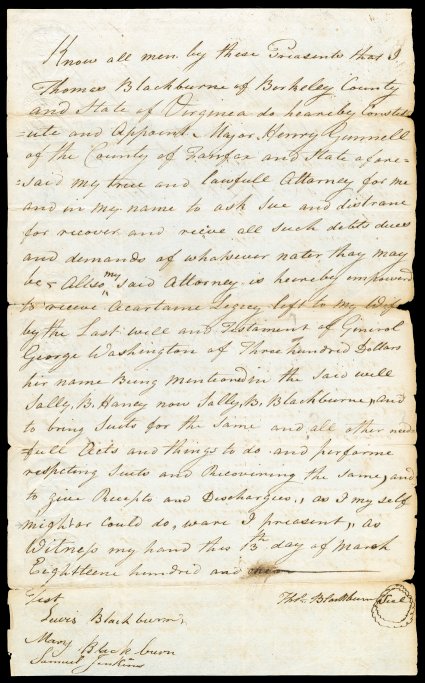 Know all men by these Presents that I
Thomas Blackburne of Berkeley County
and State of Virginea do heareby Constit
=ute and Appoint Major Henry Gunnell
of the County of Fairfax and State afore=
=said my true and lawfull Attorney for me
and in my name to ask Sue and distrane
for recover and recive all such debts dues
and demands of whatsover nater thay may
be, Allso my said Attorney is heereby empowred
to receive Acartaine Legecy left to my Wife
by the Last will and Testament of Ginerol
George Washington of Three hundred Dollars
her name Being mentioned in the said will
Sally, B. Haney now Sally, B. Blackburne, and
to bring Suits for the Same and all other need
=full Acts and things to do and performe
respecting Suits and Recovirining the Same, and
to give Recepts and Discharges, as I my self
might or Could do, ware I preasent, as
Witness my hand this 13th day of Marsh
Eighteene hundred and one
Test
Thos. Blackburn Seal
Lewis Blackburn,
Mary Blackburn
Samuel Jenkins